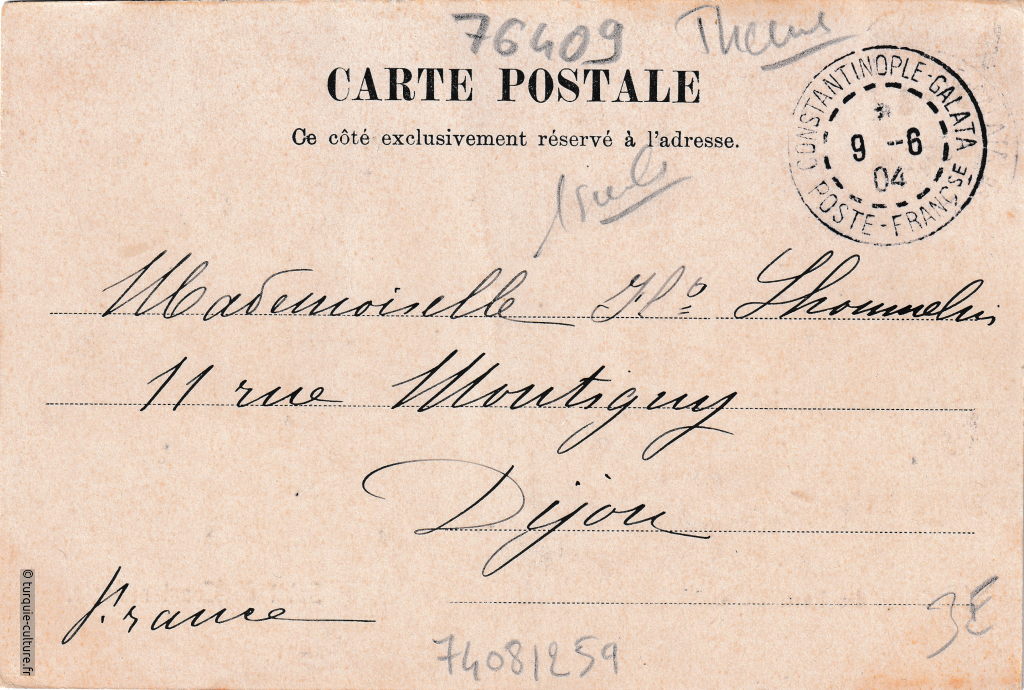 76409
CARTE POSTALE
Ce côté exclusivement réservé à l'adresse.
CONSTANTINOPLE-GALATA
9 -6
04
POSTE-FRANÇSE
Mademoiselle
11 rue Montigny
Dijon
France
3€
74081259
© turquie-culture.fr